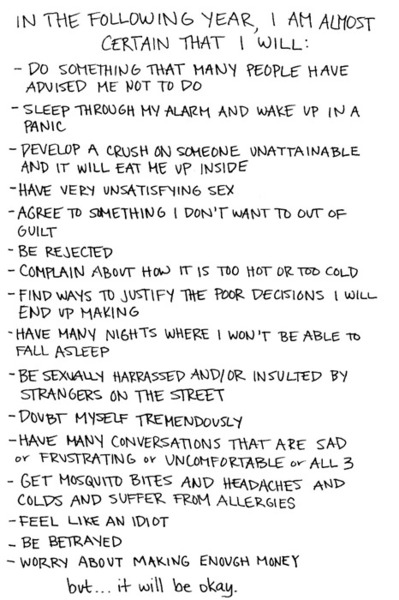 IN THE FOLLOWING YEAR, I AM ALMOST
CERTAIN THAT I WILL:
- DO SOMETHING THAT MANY PEOPLE HAVE
ADVISED ME NOT TO DO
- SLEEP THROUGH MY ALARM AND WAKE UP IN A
PANIC
- DEVELOP A CRUSH ON SOMEONE UNATTAINABLE
AND IT WILL EAT ME UP INSIDE
- HAVE VERY UNSATISFYING SEX
- AGREE TO SOMETHING I DON'T WANT TO OUT OF
GUILT
- BE REJECTED
- COMPLAIN ABOUT HOW IT IS TOO HOT OR TOO COLD
- FIND WAYS TO JUSTIFY THE POOR DECISIONS I WILL
END UP MAKING
- HAVE MANY NIGHTS WHERE I WON'T BE ABLE TO
FALL ASLEEP
- BE SEXUALLY HARRASSED AND/OR INSULTED BY
STRANGERS ON THE STREET
- DOUBT MYSELF TREMENDOUSLY
- HAVE MANY CONVERSATIONS THAT ARE SAD
or FRUSTRATING or UNCOMFORTABLE or ALL 3
- GET MOSQUITO BITES AND HEADACHES AND
COLDS AND SUFFER FROM ALLERGIES
- FEEL LIKE AN IDIOT
- BE BETRAYED
- WORRY ABOUT MAKING ENOUGH MONEY
but... it will be okay.